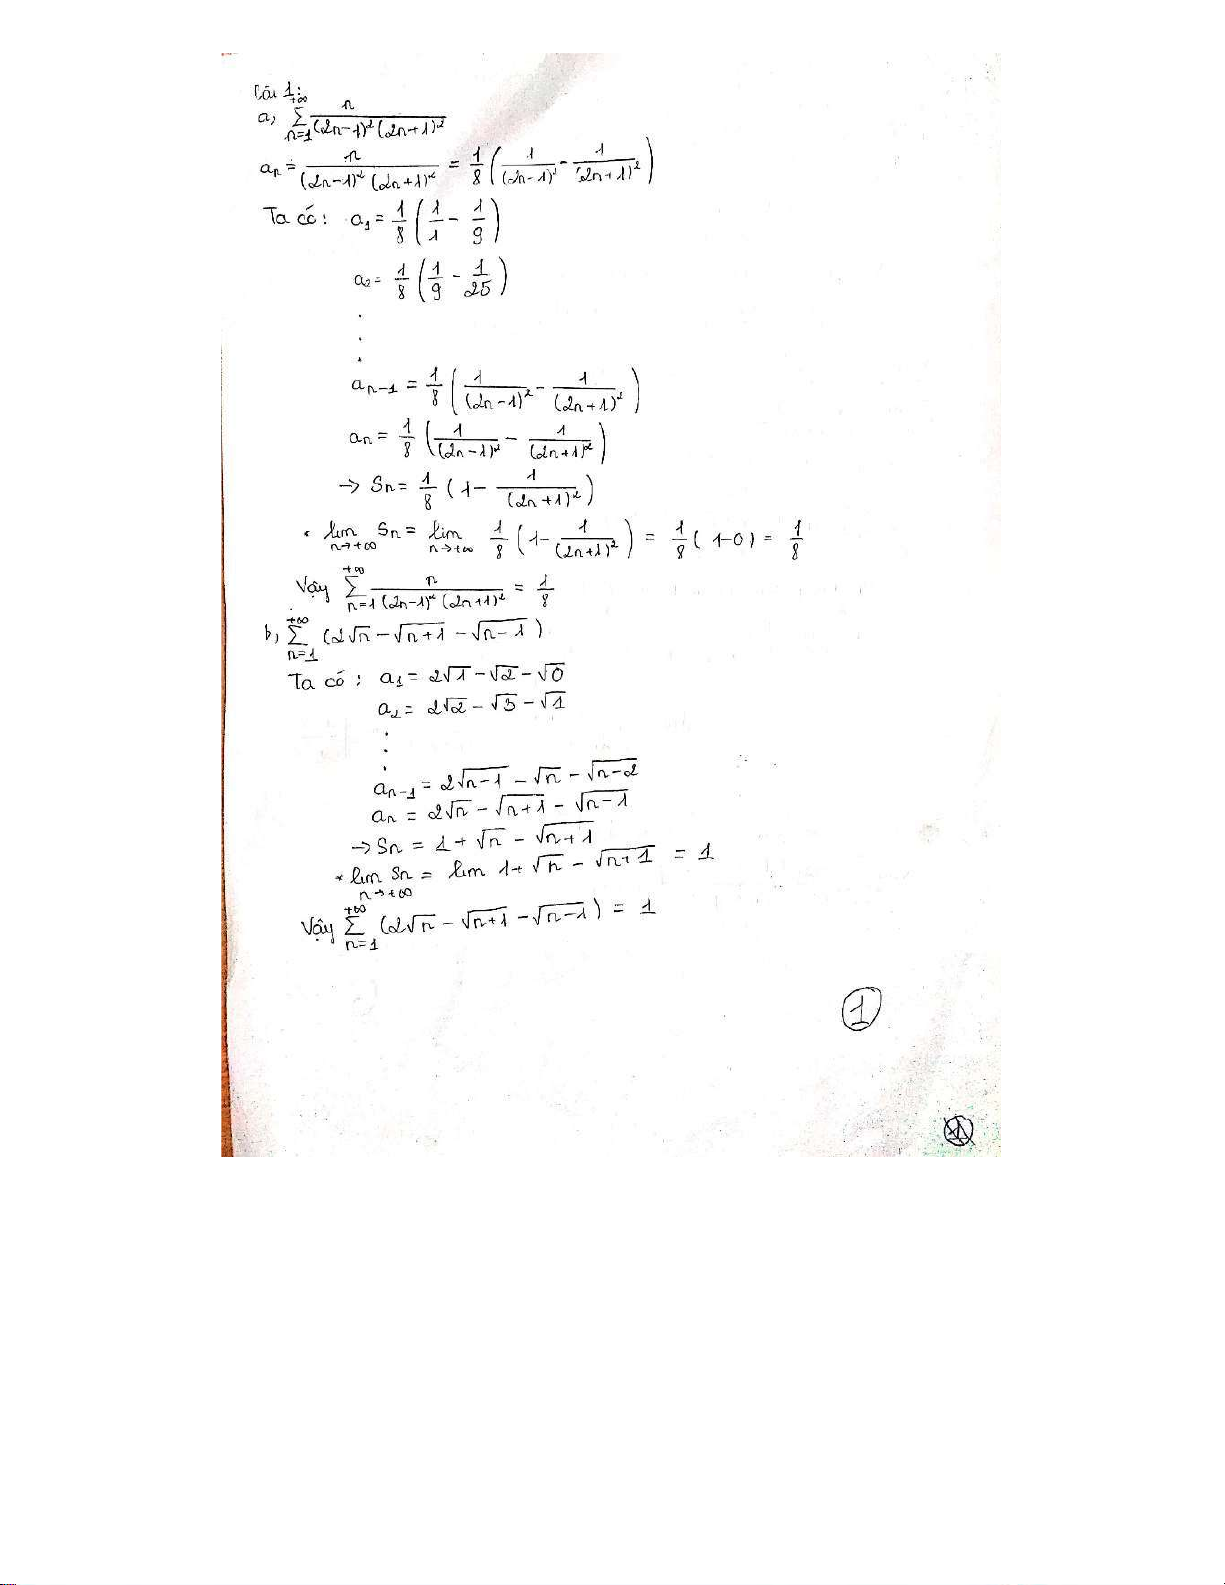 Câu 1:
a, +∞ Σ n=1 n / (2n-1)² (2n+1)²
an = n / (2n-1)² (2n+1)² = 1/8 ( 1/(2n-1)² - 1/(2n+1)² )
Ta có : a1 = 1/8 ( 1/1 - 1/9 )
a2 = 1/8 ( 1/9 - 1/25 )
.
.
.
an-1 = 1/8 ( 1/(2n-1)² - 1/(2n+1)² )
an = 1/8 ( 1/(2n-1)² - 1/(2n+1)² )
→ Sn = 1/8 ( 1 - 1/(2n+1)² )
* lim n→+∞ Sn = lim n→+∞ 1/8 ( 1 - 1/(2n+1)² ) = 1/8 ( 1-0 ) = 1/8
Vậy +∞ Σ n=1 n / (2n-1)² (2n+1)² = 1/8
b, +∞ Σ n=1 (2√n - √n+1 - √n-1 )
Ta có : a1 = 2√1 - √2 - √0
a2 = 2√2 - √3 - √1
.
.
.
an-1 = 2√n-1 - √n - √n-2
an = 2√n - √n+1 - √n-1
→ Sn = 1 + √n - √n+1
* lim n→+∞ Sn = lim 1 + √n - √n+1 = 1
Vậy +∞ Σ n=1 (2√n - √n+1 - √n-1 ) = 1
1